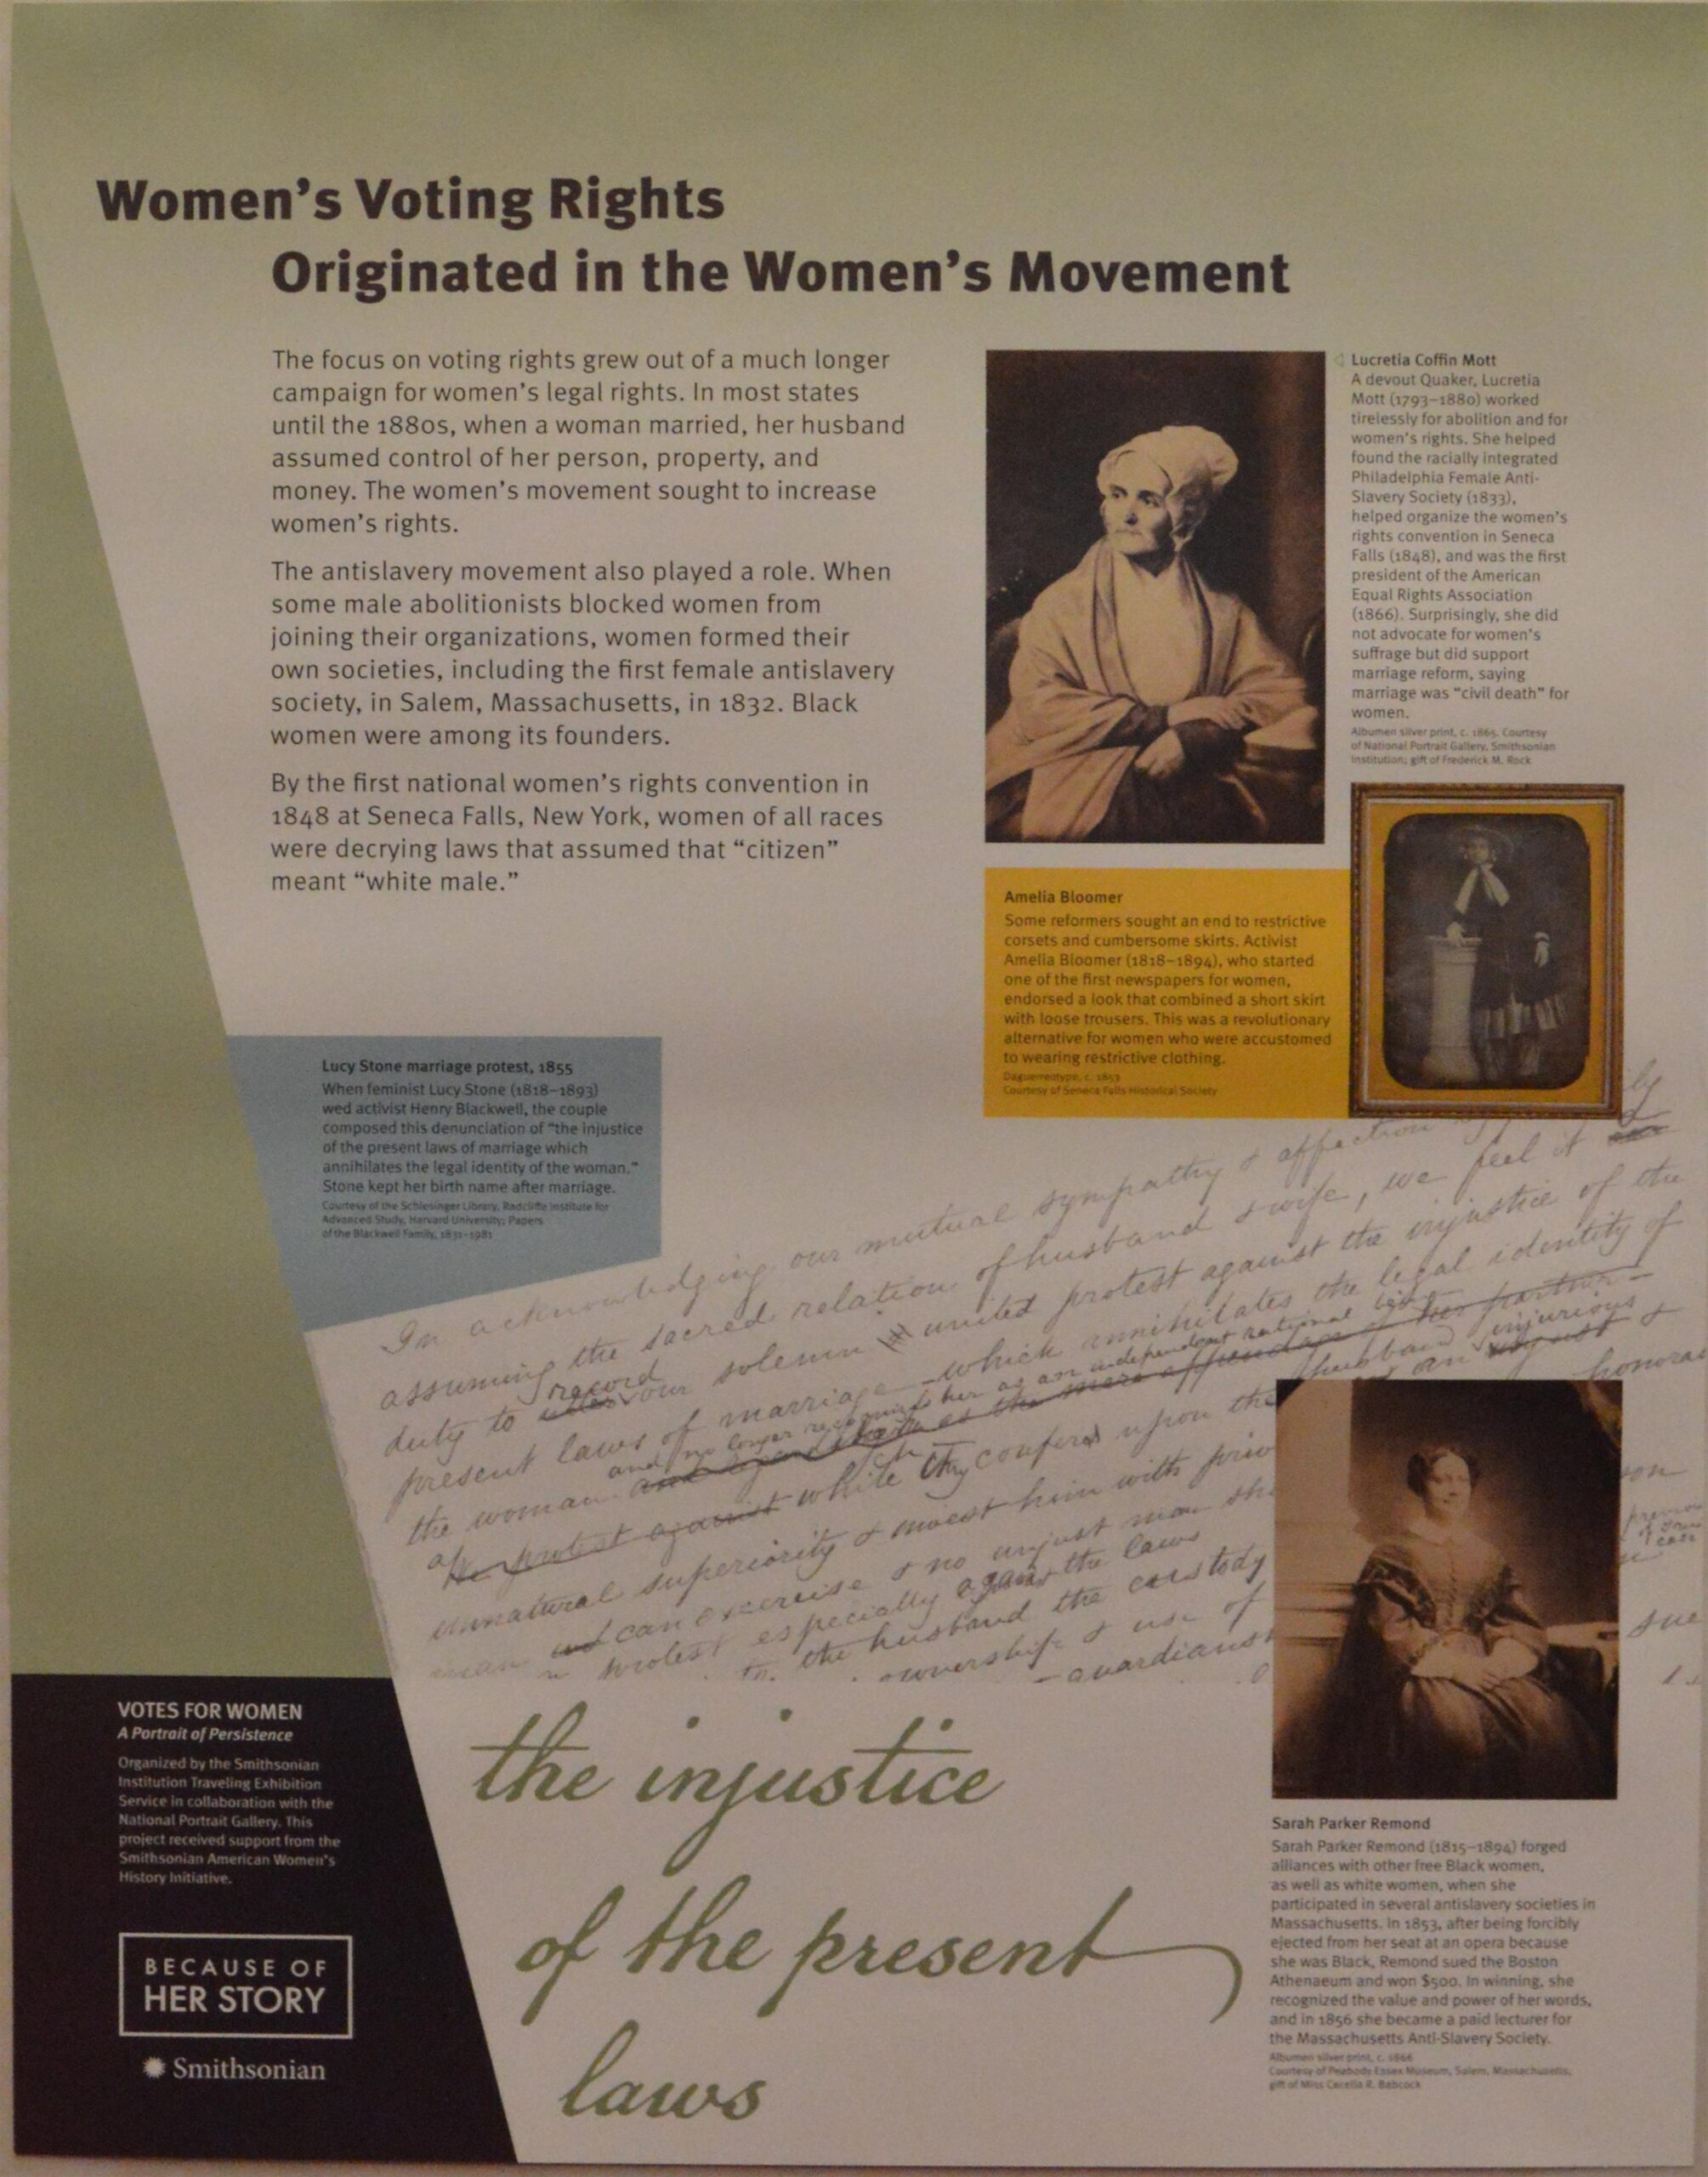 Women's Voting Rights
Originated in the Women's Movement
The focus on voting rights grew out of a much longer
campaign for women's legal rights. In most states
until the 1880s, when a woman married, her husband
assumed control of her person, property, and
money. The women's movement sought to increase
women's rights.
The antislavery movement also played a role. When
some male abolitionists blocked women from
joining their organizations, women formed their
own societies, including the first female antislavery
society, in Salem, Massachusetts, in 1832. Black
women were among its founders.
By the first national women's rights convention in
1848 at Seneca Falls, New York, women of all races
were decrying laws that assumed that “citizen”
meant “white male.”
Lucretia Coffin Mott
A devout Quaker, Lucretia
Mott (1793–1880) worked
tirelessly for abolition and for
women's rights. She helped
found the racially integrated
Philadelphia Female Anti-
Slavery Society (1833),
helped organize the women's
rights convention in Seneca
Falls (1848), and was the first
president of the American
Equal Rights Association
(1866). Surprisingly, she did
not advocate for women's
suffrage but did support
marriage reform, saying
marriage was “civil death” for
women.
Albumen silver print, c. 1865. Courtesy
of National Portrait Gallery, Smithsonian
Institution; gift of Frederick M. Rock
Amelia Bloomer
Some reformers sought an end to restrictive
corsets and cumbersome skirts. Activist
Amelia Bloomer (1818–1894), who started
one of the first newspapers for women,
endorsed a look that combined a short skirt
with loose trousers. This was a revolutionary
alternative for women who were accustomed
to wearing restrictive clothing.
Daguerreotype, c. 1853
Courtesy of Seneca Falls Historical Society
Lucy Stone marriage protest, 1855
When feminist Lucy Stone (1818–1893)
wed activist Henry Blackwell, the couple
composed this denunciation of “the injustice
of the present laws of marriage which
annihilates the legal identity of the woman.”
Stone kept her birth name after marriage.
Courtesy of the Schlesinger Library, Radcliffe Institute for
Advanced Study, Harvard University; Papers
of the Blackwell Family, 1831–1981
In acknowledging our mutual sympathy & affection
assuming the sacred relation of husband & wife, we feel it
record
duty to our solemn united protest against the injustice of the
present laws of marriage which annihilates the legal identity of
and no longer her as an independent rational
the woman
protest against while they confers upon the husband an injurious &
unnatural superiority & invest him with
honorable
man can exercise & no unjust man
protest especially against the laws
to the husband the custody
ownership & use of
guardians
the injustice
of the present
laws
VOTES FOR WOMEN
A Portrait of Persistence
Organized by the Smithsonian
Institution Traveling Exhibition
Service in collaboration with the
National Portrait Gallery. This
project received support from the
Smithsonian American Women's
History Initiative.
BECAUSE OF
HER STORY
Smithsonian
Sarah Parker Remond
Sarah Parker Remond (1815–1894) forged
alliances with other free Black women,
as well as white women, when she
participated in several antislavery societies in
Massachusetts. In 1853, after being forcibly
ejected from her seat at an opera because
she was Black, Remond sued the Boston
Athenaeum and won $500. In winning, she
recognized the value and power of her words,
and in 1856 she became a paid lecturer for
the Massachusetts Anti-Slavery Society.
Albumen silver print, c. 1866
Courtesy of Peabody Essex Museum, Salem, Massachusetts,
gift of Miss Cecelia R. Babcock